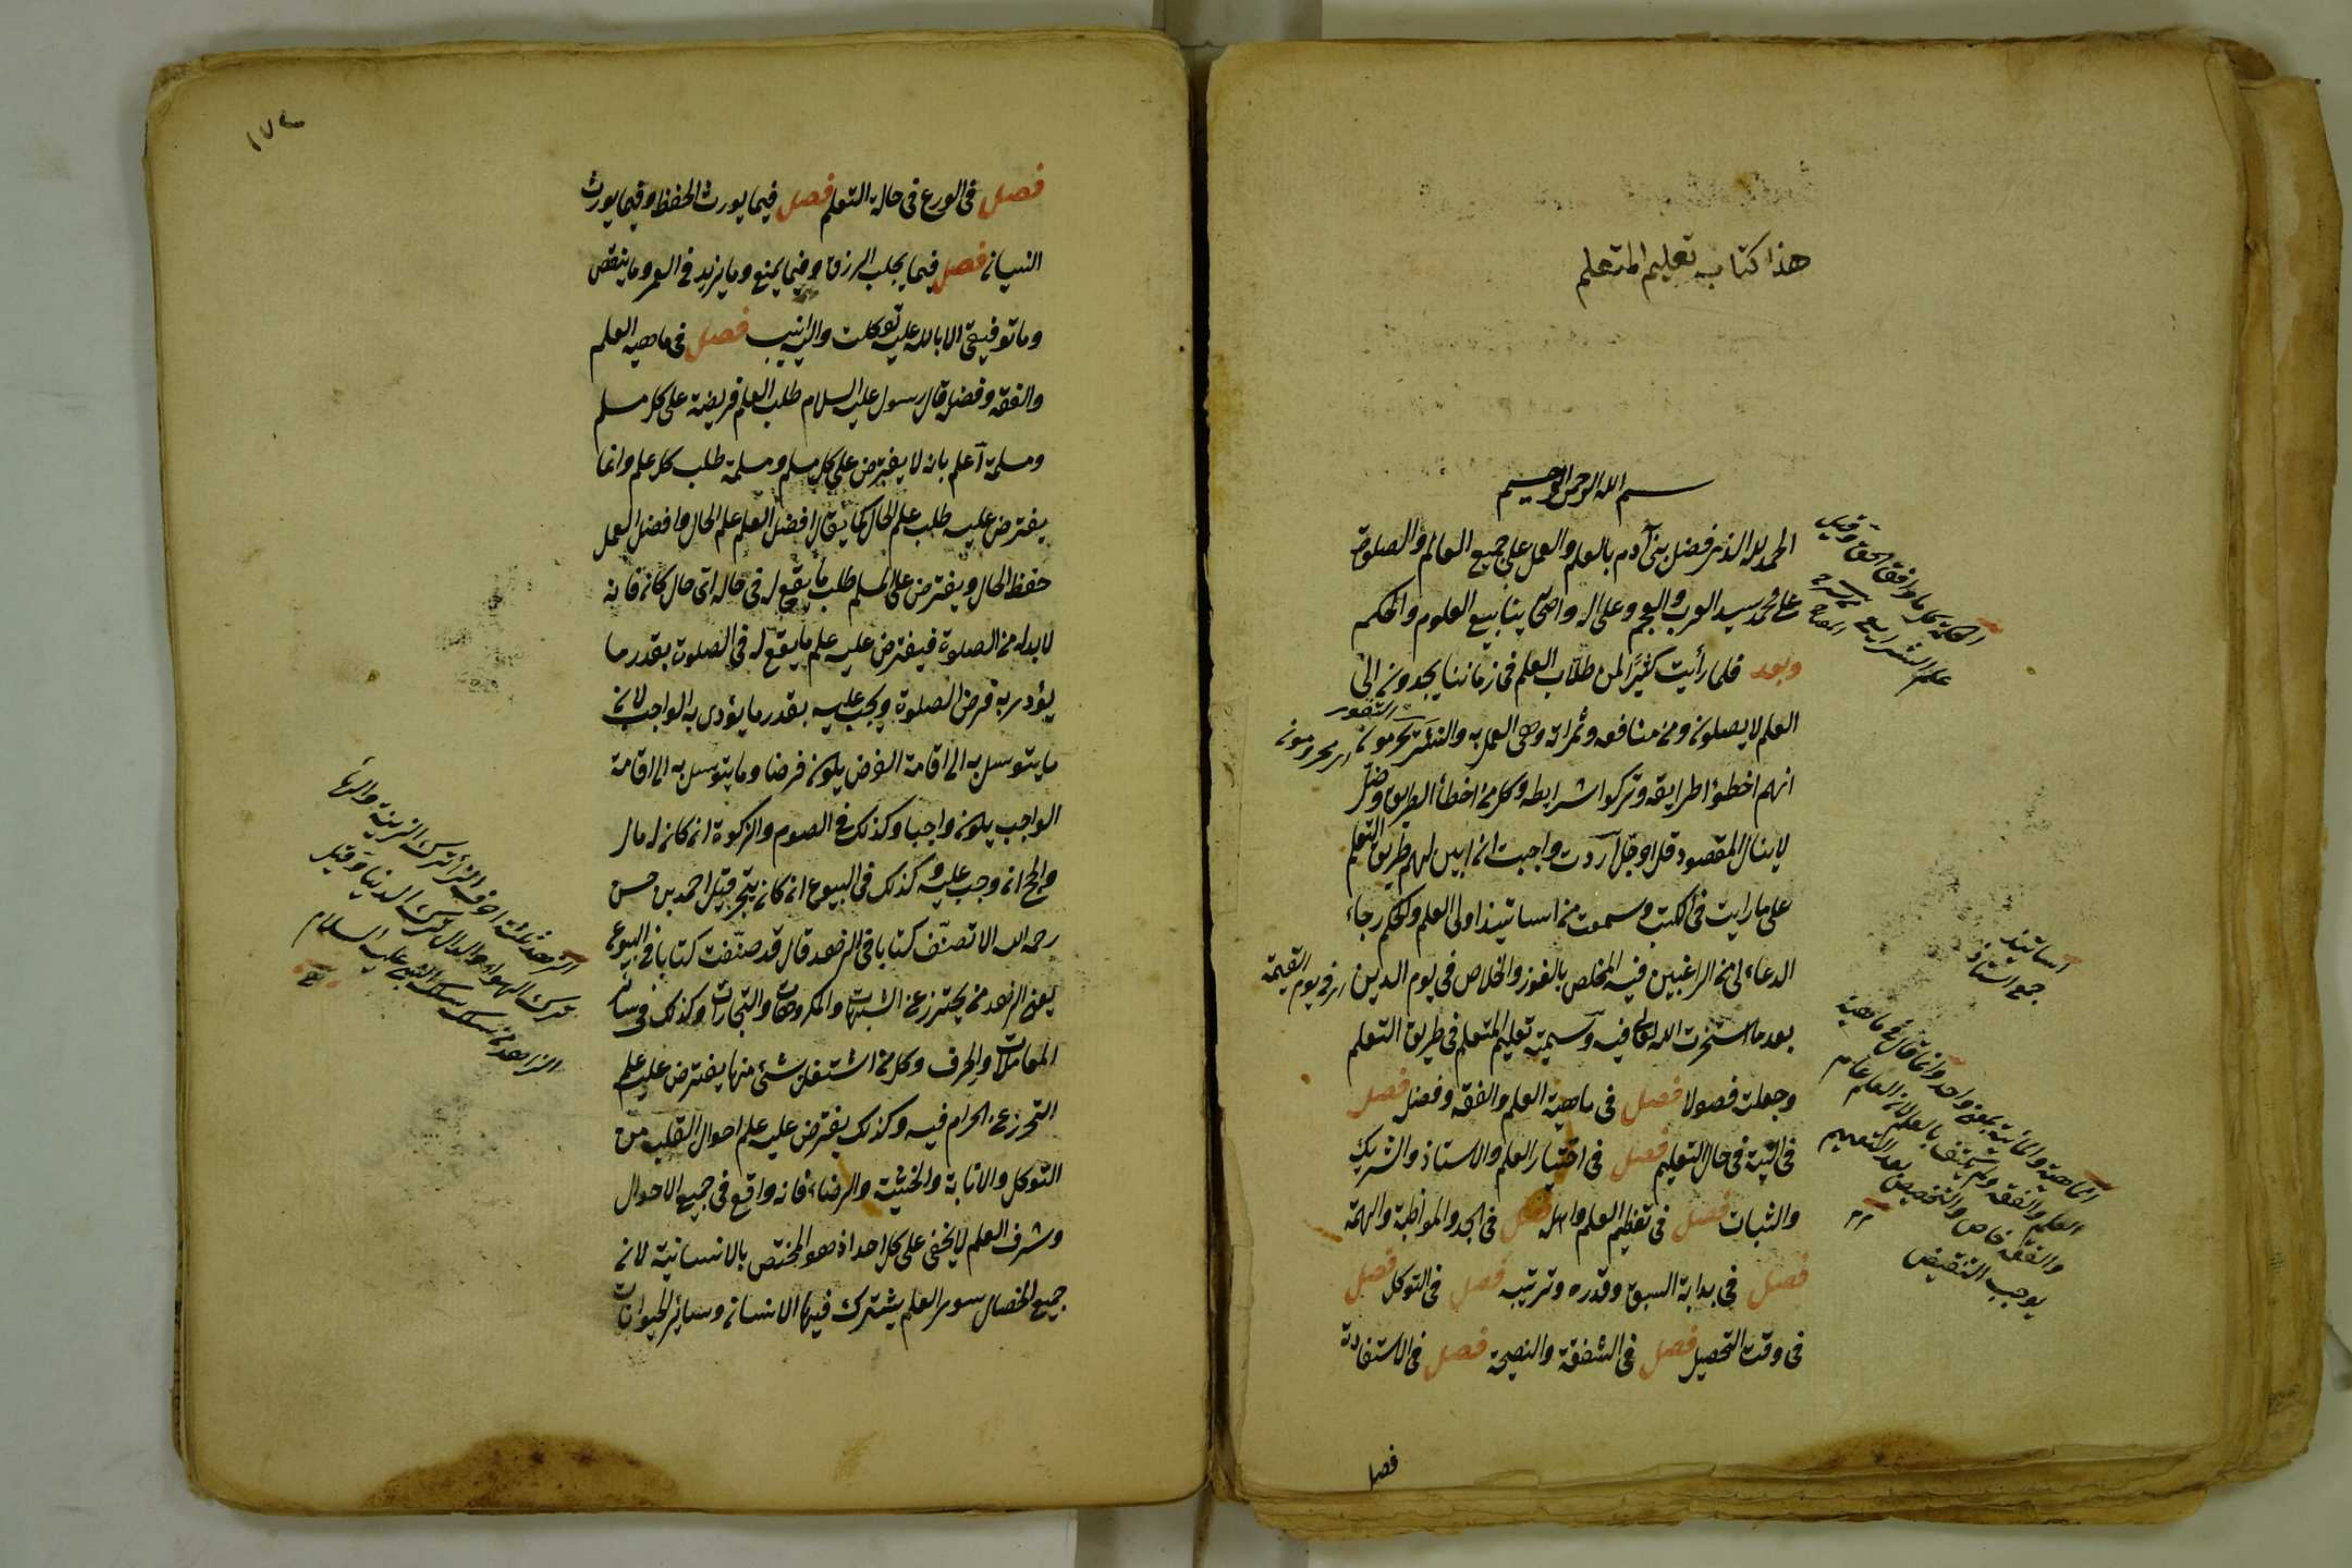 هذا كتاب تعليم المتعلم
بسم الله الرحمن الرحيم
الحمد لله الذى فضل بنى آدم بالعلم والعمل على جميع العالم والصلوة
على محمد سيد العرب والعجم وعلى اله واصحابه ينابيع العلوم والحكم
وبعد فلما رأيت كثيرًا من طلاب العلم فى زماننا يجدون الى
العلم لا يصلون ومن منافعه وثمراته وهى العمل به والنشر يحرمون
انهم اخطؤا طرايقه وتركوا شرايطه وكل من اخطأ الطريق وضل
لا ينال المقصود قل او جل اردت واحببت ان ابين لهم طريق التعلم
على ما رايت فى الكتب وسمعت من اساتيذ اولى العلم والحكم رجاء
الدعاء لى من الراغبين فيه المخلص بالفوز والخلاص فى يوم الدين
بعد ما استخرت الله تعالى فيه وسميته تعليم المتعلم فى طريق التعلم
وجعلت فصولا فصل فى ماهية العلم والفقه وفضله فصل
فى النية فى حال التعليم فصل فى اختيار العلم والاستاذ والشريك
والثبات فصل فى تعظيم العلم واهله فصل فى الجد والمواظبة والهمة
فصل فى بداية السبق وقدره وترتيبه فصل فى التوكل فصل
فى وقت التحصيل فصل فى الشفقة والنصيحة فصل فى الاستفادة
فصل
الحكمة كل ما وافق الحق وقيل
علم الشرايع
اى يحرومون
اى فى يوم القيمة
اساتيذ
جمع استاذ
الماهية والمائية بمعنى واحد وانما قال فى ماهية
العلم والفقه ولم يكتف بالعلم لان العلم عام
والفقه خاص والتخصيص بعد التعميم
يوجب التنقيص
١٧٢
فصل فى الورع فى حالة التعلم فصل فيما يورث الحفظ وفيما يورث
النسيان فصل فيما يجلب الرزق وفيما يمنع وما يزيد فى العمر وما ينقص
وما توفيقى الا بالله عليه توكلت واليه انيب فصل فى ماهية العلم
والفقه وفضله قال رسول عليه السلام طلب العلم فريضة على كل مسلم
ومسلمة اعلم بانه لا يفترض على كل مسلم ومسلمة طلب كل علم وانما
يفترض عليه طلب علم الحال كما يقال افضل العلم علم الحال وافضل العمل
حفظ الحال ويفترض على المسلم طلب ما يقع له فى حاله اى حال كان فانه
لا بد له من الصلوة فيفترض عليه علم ما يقع له فى الصلوة بقدر ما
يؤدى به فرض الصلوة ويجب عليه بقدر ما يؤدى به الواجب لان
ما يتوسل به الى اقامة الفرض يكون فرضا وما يتوسل به الى اقامة
الواجب يكون واجبا وكذلك فى الصوم والزكوة ان كان له مال
والحج ان وجب عليه وكذلك فى البيوع ان كان يتجر قيل احمد بن حسن
رحمه الله الا تصنّف كتابا فى الزهد قال قد صنّفت كتابا فى البيوع
يعنى الزهد من يحترز عن الشبهات والمكروهات والتجارات وكذلك فى سائر
المعاملات والحرف وكل من اشتغل بشئ منها يفترض عليه علم
التحرز عن الحرام فيه وكذلك يفترض عليه علم احوال القلب من
التوكل والانابة والخشية والرضاء فانه واقع فى جميع الاحوال
وشرف العلم لا يخفى على كل احد اذ هو المختص بالانسانية لان
جميع الخصال سوى العلم يشترك فيها الانسان وسائر الحيوانات
الزهد ثلثة احرف الزاء ترك الزينة والهاء
ترك الهواء والدال ترك الدنيا وقيل